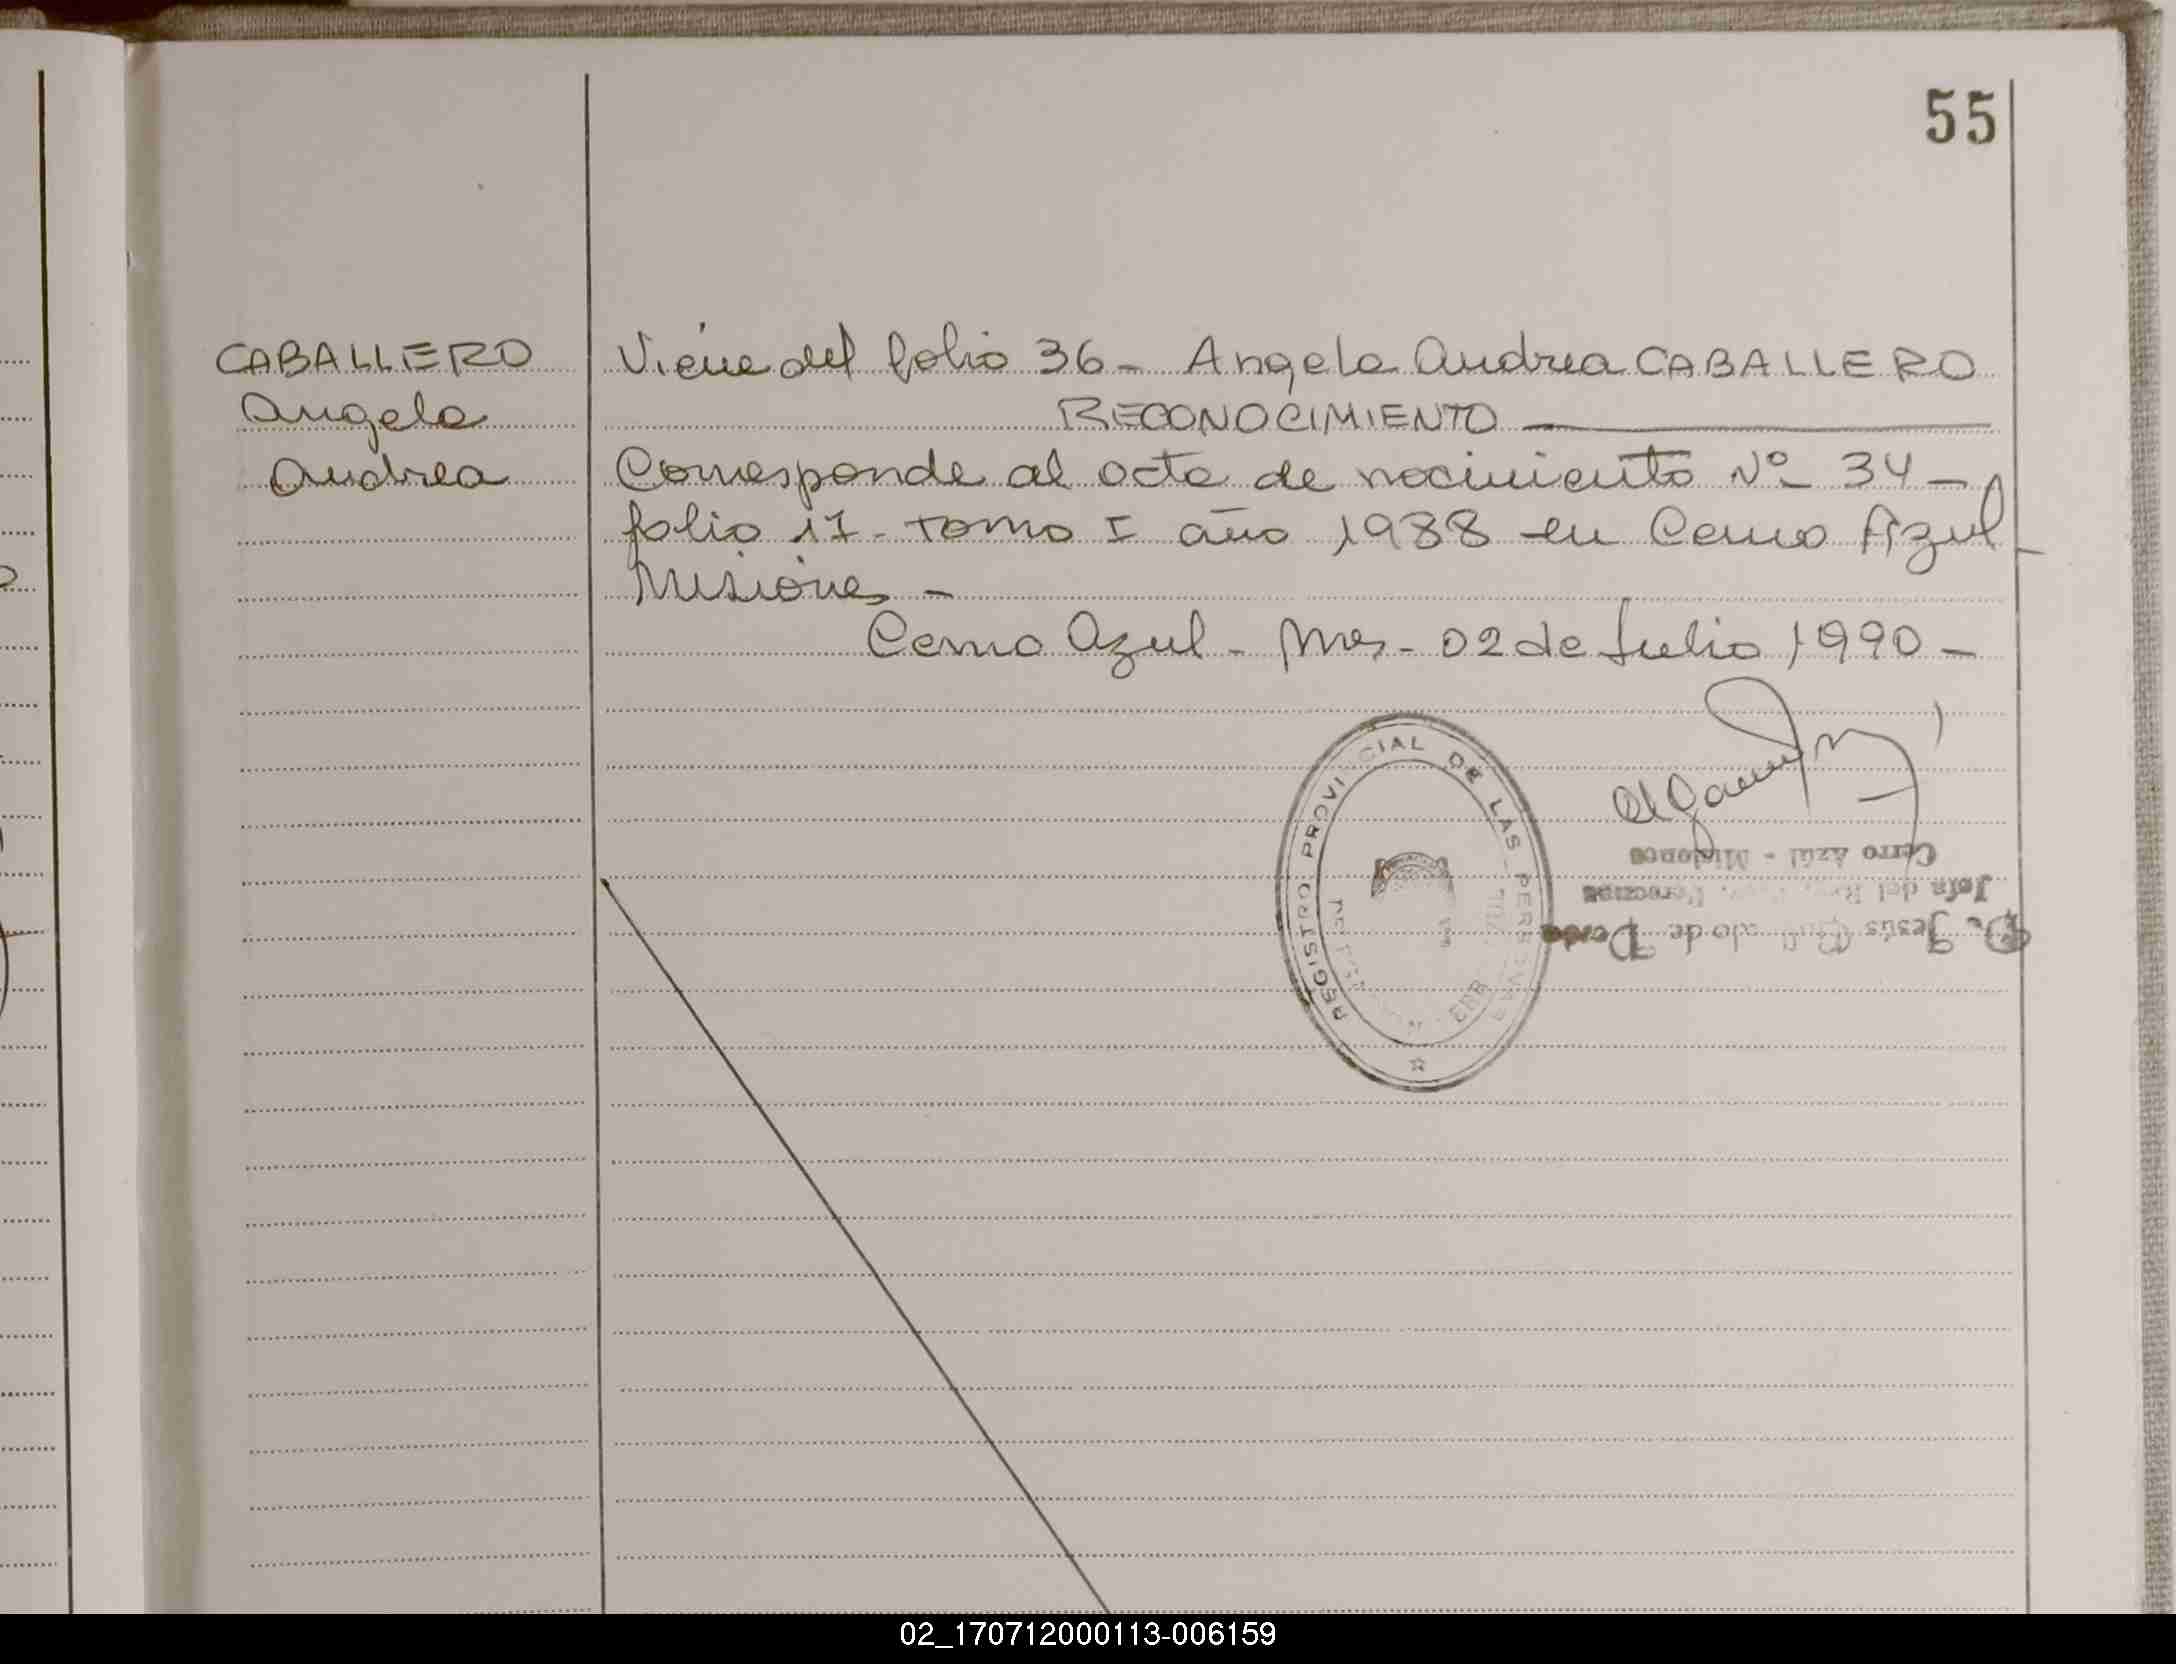 55
CABALLERO
Angela
Andrea
Viene del folio 36 - Angela Andrea CABALLERO
RECONOCIMIENTO
Corresponde al acta de nacimiento Nº 34 -
folio 17 - tomo I año 1988 en Cerro Azul -
Misiones -
Cerro Azul - Mnes - 02 de Julio 1990 -
REGISTRO PROVINCIAL DE LAS PERSONAS
Cerro Azúl - Misiones
Jefa del
Jesús de
02_170712000113-006159